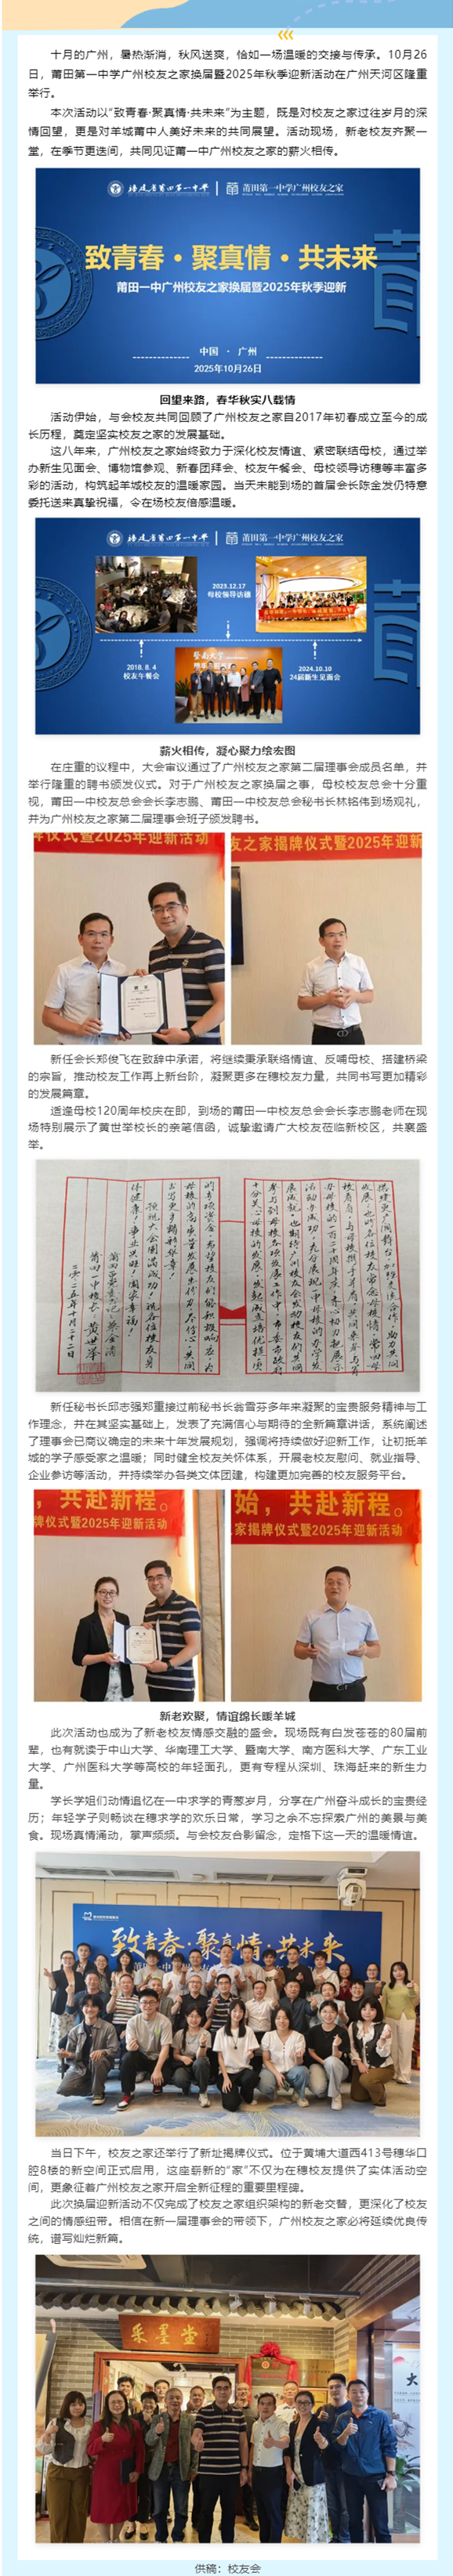 十月的广州，暑热渐消，秋风送爽，恰如一场温暖的交接与传承。10月26
日，莆田第一中学广州校友之家换届暨2025年秋季迎新活动在广州天河区隆重
举行。
本次活动以“致青春·聚真情·共未来”为主题，既是对校友之家过往岁月的深
情回望，更是对羊城莆中人美好未来的共同展望。活动现场，新老校友齐聚一
堂，在季节更迭间，共同见证莆一中广州校友之家的薪火相传。
福建省莆田第一中学 莆田第一中学广州校友之家
致青春·聚真情·共未来
莆田一中广州校友之家换届暨2025年秋季迎新
中国 · 广州
2025年10月26日
回望来路，春华秋实八载情
活动伊始，与会校友共同回顾了广州校友之家自2017年初春成立至今的成
长历程，奠定坚实校友之家的发展基础。
这八年来，广州校友之家始终致力于深化校友情谊、紧密联结母校，通过举
办新生见面会、博物馆参观、新春团拜会、校友午餐会、母校领导访穗等丰富多
彩的活动，构筑起羊城校友的温暖家园。当天未能到场的首届会长陈金发仍特意
委托送来真挚祝福，令在场校友倍感温暖。
福建省莆田第一中学 莆田第一中学广州校友之家
2023.12.17
母校领导访穗
2018.8.4
校友午餐会
2024.10.10
24届新生见面会
薪火相传，凝心聚力绘宏图
在庄重的议程中，大会审议通过了广州校友之家第二届理事会成员名单，并
举行隆重的聘书颁发仪式。对于广州校友之家换届之事，母校校友总会十分重
视，莆田一中校友总会会长李志鹏、莆田一中校友总会秘书长林铭伟到场观礼，
并为广州校友之家第二届理事会班子颁发聘书。
牌仪式暨2025年迎新活动
友之家揭牌仪式暨2025年迎新
新任会长郑俊飞在致辞中承诺，将继续秉承联络情谊、反哺母校、搭建桥梁
的宗旨，推动校友工作再上新台阶，凝聚更多在穗校友力量，共同书写更加精彩
的发展篇章。
适逢母校120周年校庆在即，到场的莆田一中校友总会会长李志鹏老师在现
场特别展示了黄世举校长的亲笔信函，诚挚邀请广大校友莅临新校区，共襄盛
举。
预祝大会圆满成功！祝各位校友身
体健康！事业兴旺！阖家幸福！
莆田一中校长：黄世举
二〇二五年十月二十二日
新任秘书长邱志强郑重接过前秘书长翁雪芬多年来凝聚的宝贵服务精神与工
作理念，并在其坚实基础上，发表了充满信心与期待的全新篇章讲话，系统阐述
了理事会已商议确定的未来十年发展规划，强调将持续做好迎新工作，让初抵羊
城的学子感受家之温暖；同时健全校友关怀体系，开展老校友慰问、就业指导、
企业参访等活动，并持续举办各类文体团建，构建更加完善的校友服务平台。
，共赴新程。
牌仪式暨2025年迎新活动
始，共赴新程。
家揭牌仪式暨2025年迎新活动
新老欢聚，情谊绵长暖羊城
此次活动也成为了新老校友情感交融的盛会。现场既有白发苍苍的80届前
辈，也有就读于中山大学、华南理工大学、暨南大学、南方医科大学、广东工业
大学、广州医科大学等高校的年轻面孔，更有专程从深圳、珠海赶来的新生力
量。
学长学姐们动情追忆在一中求学的青葱岁月，分享在广州奋斗成长的宝贵经
历；年轻学子则畅谈在穗求学的欢乐日常，学习之余不忘探索广州的美景与美
食。现场真情涌动，掌声频频。与会校友合影留念，定格下这一天的温暖情谊。
致青春·聚真情·共未来
当日下午，校友之家还举行了新址揭牌仪式。位于黄埔大道西413号穗华口
腔8楼的新空间正式启用，这座崭新的“家”不仅为在穗校友提供了实体活动空
间，更象征着广州校友之家开启全新征程的重要里程碑。
此次换届迎新活动不仅完成了校友之家组织架构的新老交替，更深化了校友
之间的情感纽带。相信在新一届理事会的带领下，广州校友之家必将延续优良传
统，谱写灿烂新篇。
采墨堂
供稿：校友会